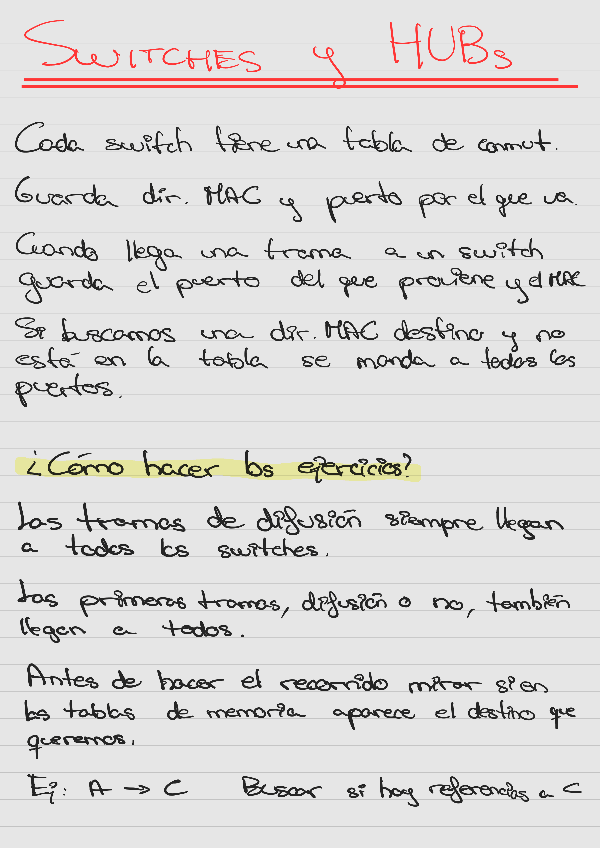 SWITCHES y HUBs
Cada switch tiene una tabla de conmut.
Guarda dir. MAC y puerto por el que va.
Cuando llega una trama a un switch
guarda el puerto del que proviene y el MAC
Si buscamos una dir. MAC destino y no
está en la tabla se manda a todos los
puertos.
¿Cómo hacer los ejercicios?
Las tramas de difusión siempre llegan
a todos los switches.
Las primeras tramas, difusión o no, también
llegan a todos.
Antes de hacer el recorrido mirar si en
las tablas de memoria aparece el destino que
queremos.
Ej: A → C Buscar si hay referencias a C